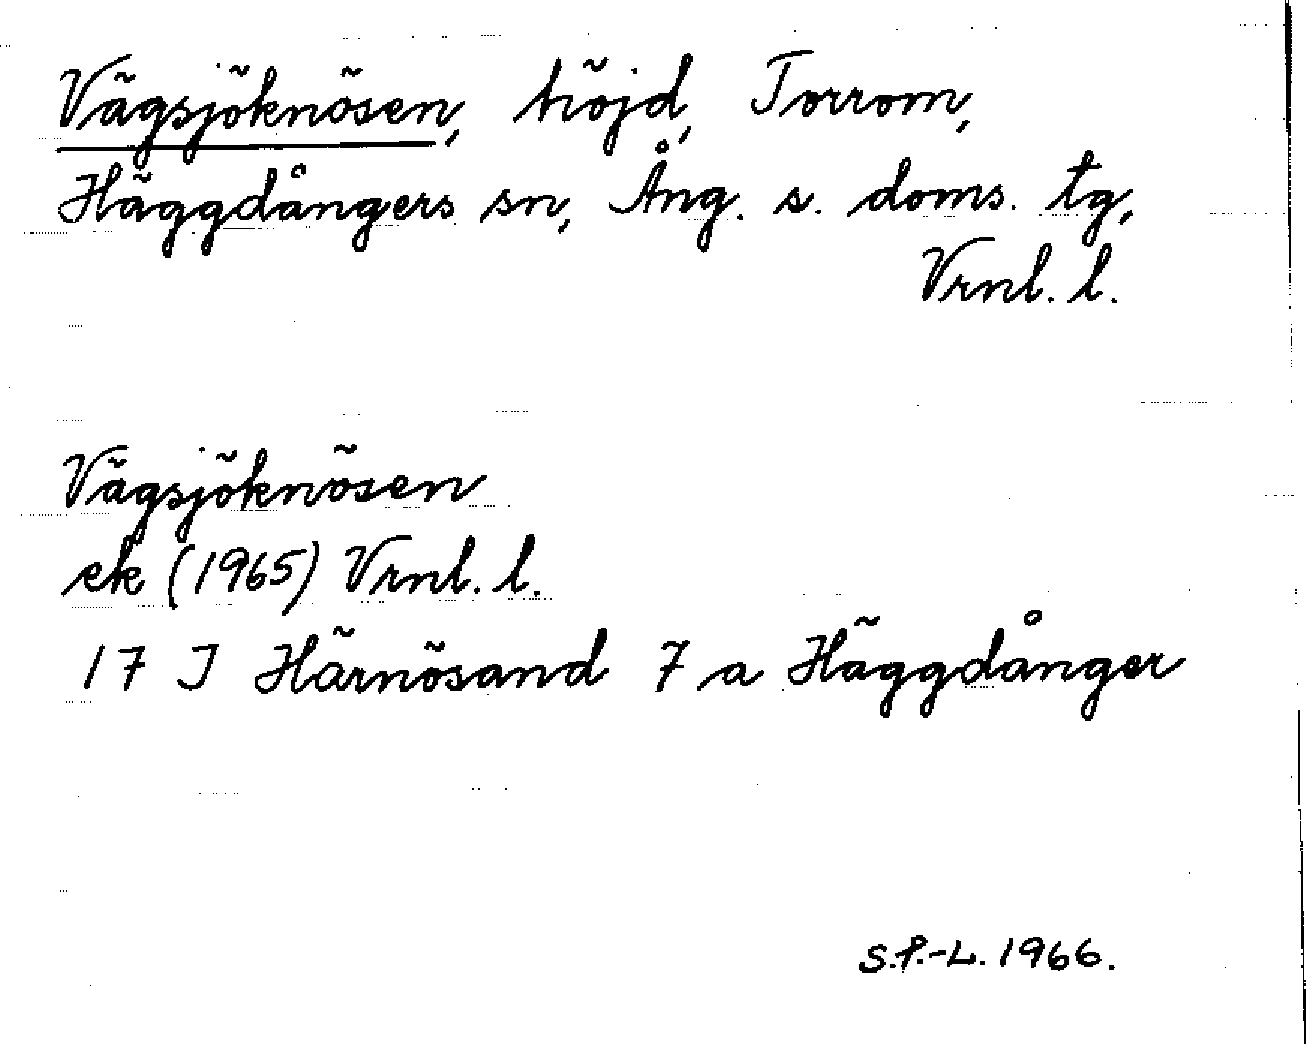 Vägsjöknösen, höjd, Torrom,
Häggdångers sn, Ång. s. doms. tg,
Vrnl. l.
Vägsjöknösen
ek (1965) Vrnl. l.
17 I Härnösand 7 a Häggdånger
S.P.-L. 1966.